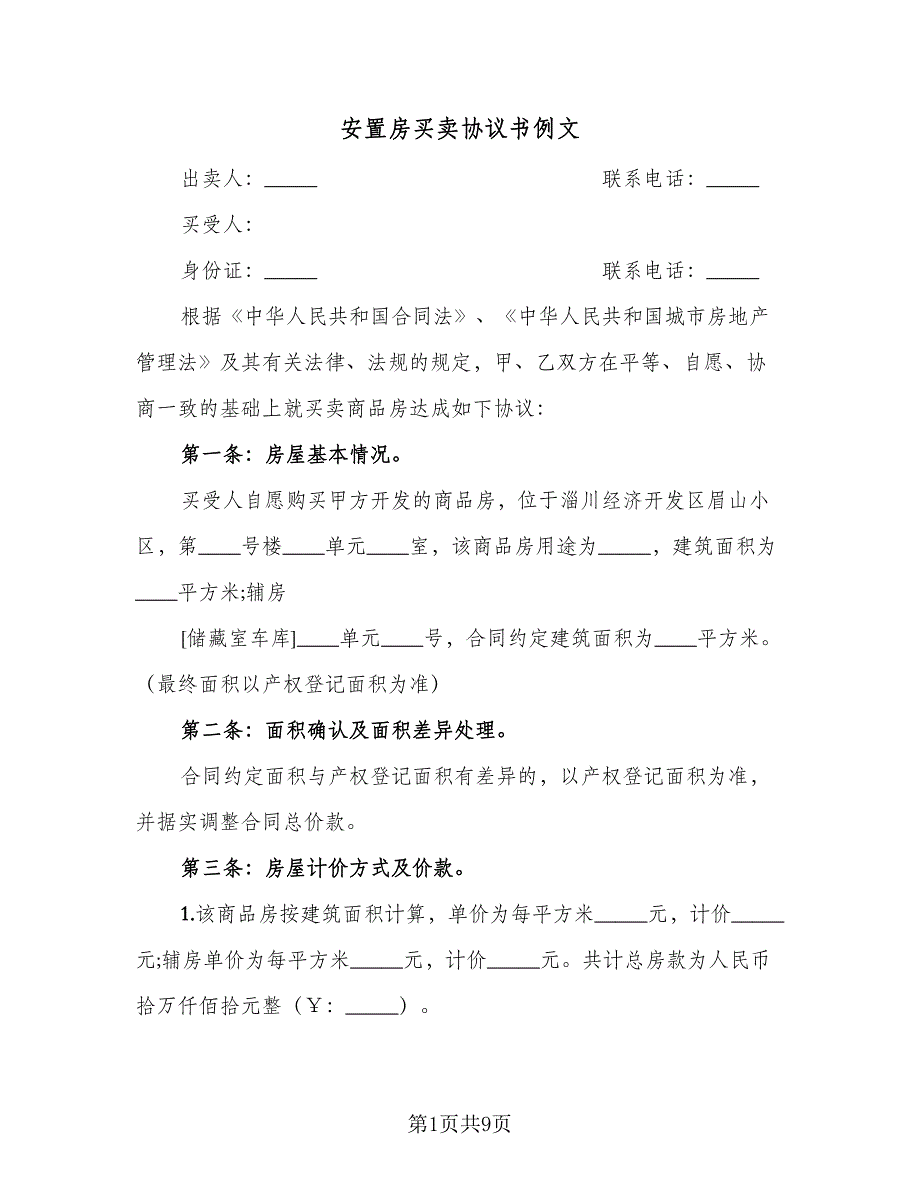 安置房买卖协议书例文
出卖人：_____ 联系电话：_____
买受人：
身份证：_____ 联系电话：_____
根据《中华人民共和国合同法》、《中华人民共和国城市房地产
管理法》及其有关法律、法规的规定，甲、乙双方在平等、自愿、协
商一致的基础上就买卖商品房达成如下协议：
第一条：房屋基本情况。
买受人自愿购买甲方开发的商品房，位于淄川经济开发区眉山小
区，第____号楼____单元____室，该商品房用途为_____，建筑面积为
____平方米;辅房
[储藏室车库]____单元____号，合同约定建筑面积为____平方米。
（最终面积以产权登记面积为准）
第二条：面积确认及面积差异处理。
合同约定面积与产权登记面积有差异的，以产权登记面积为准，
并据实调整合同总价款。
第三条：房屋计价方式及价款。
1.该商品房按建筑面积计算，单价为每平方米_____元，计价_____
元;辅房单价为每平方米_____元，计价_____元。共计总房款为人民币
拾万仟佰拾元整（￥：_____）。
第1页共9页